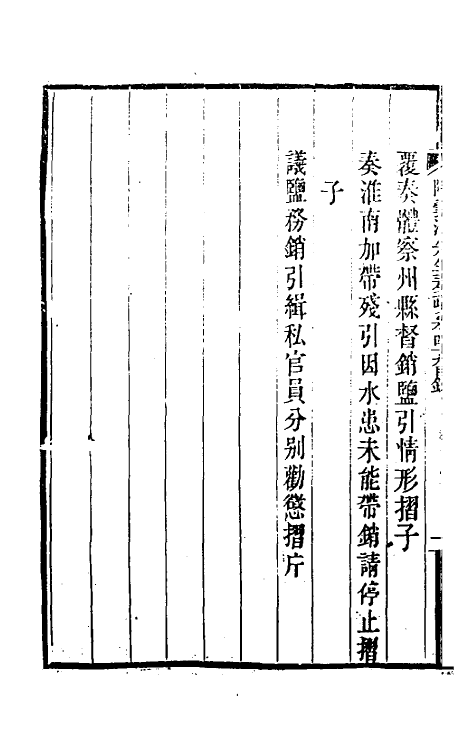 覆奏體察州縣督銷鹽引情形摺子
奏淮南加帶殘引因水患未能帶銷請停止摺
子
議鹽務銷引緝私官員分别勸懲摺片